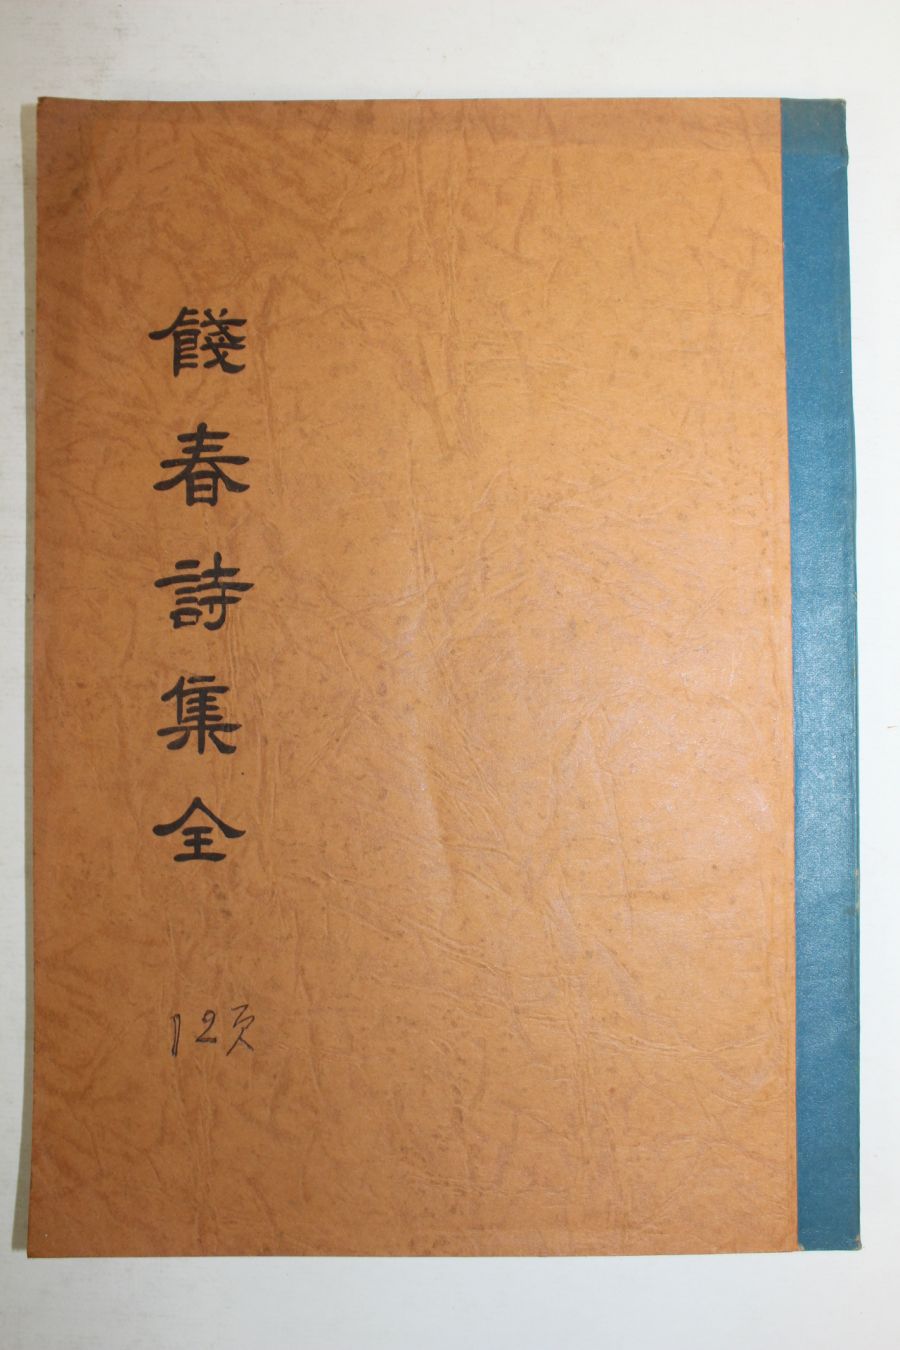 餞春詩集全
12頁